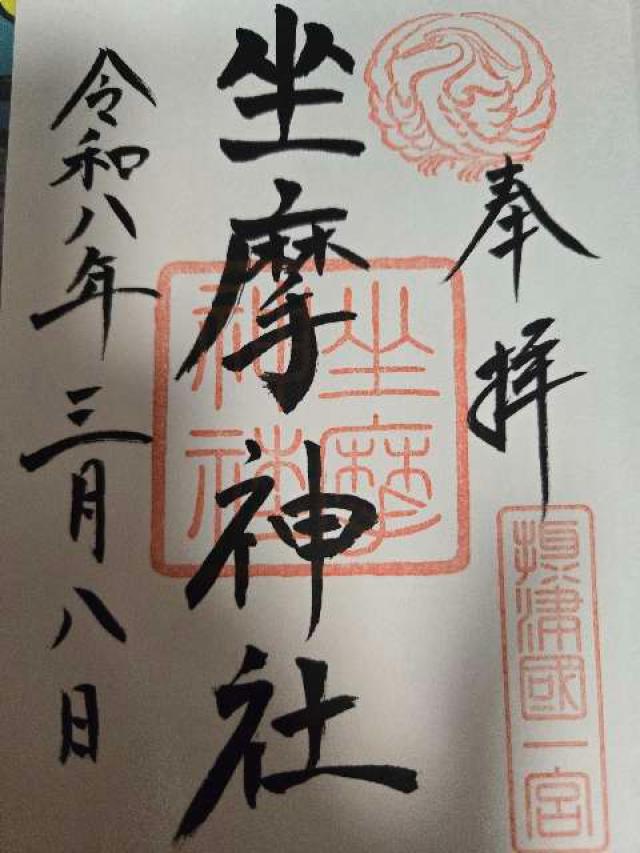 奉拝
摂津國一宮
坐摩神社
坐摩神社
令和八年三月八日